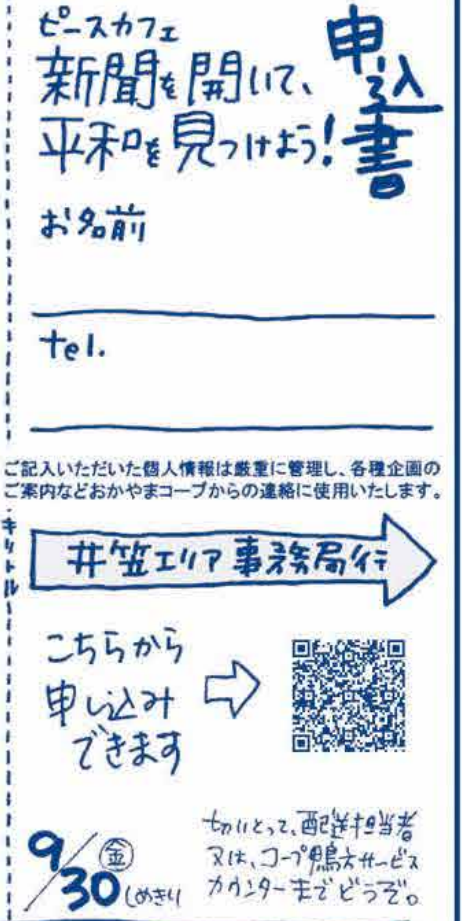 ピースカフェ
新聞を開いて、
平和を見つけよう!
申込書
お名前
tel.
ご記入いただいた個人情報は厳重に管理し、各種企画の
ご案内などおかやまコープからの連絡に使用いたします。
キリトル
井笠エリア事務局行
こちらから
申し込み
できます
9/30㊎しめきり
切りとって、配送担当者
又は、コープ鴨方サービス
カウンターまでどうぞ。